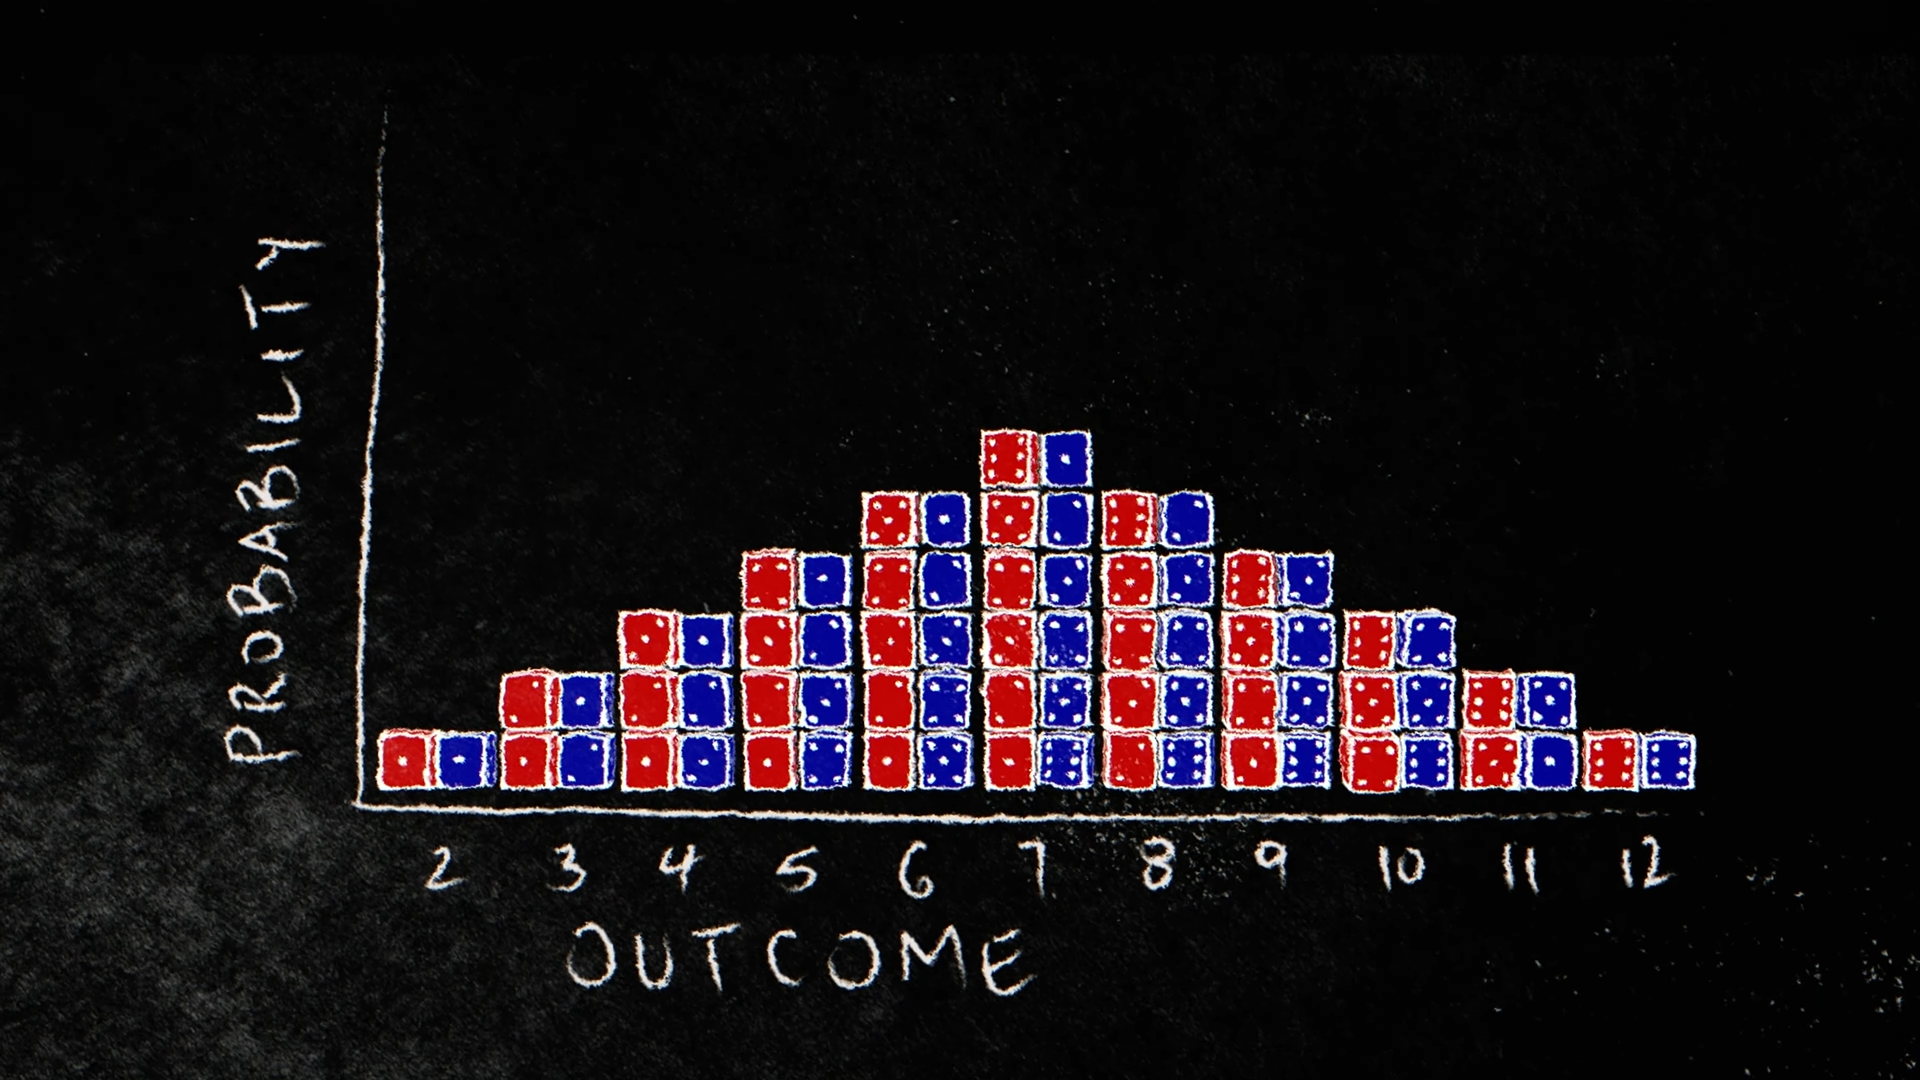 PROBABILITY
2 3 4 5 6 7 8 9 10 11 12
OUTCOME